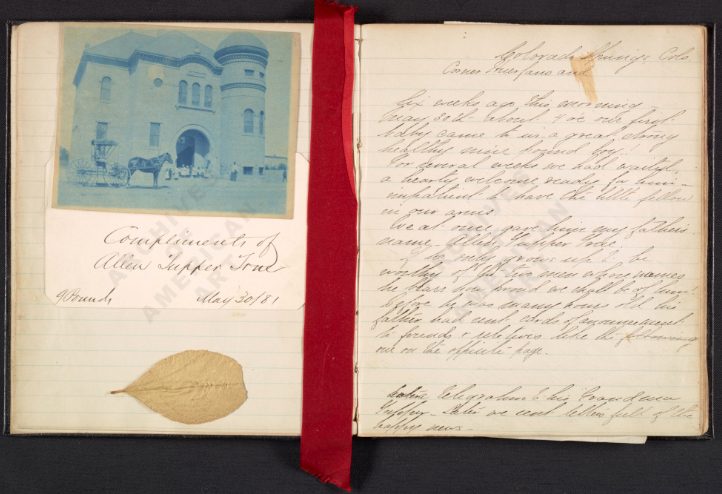 Compliments of
Allen Tupper True
9 Pounds May 30/81
Colorado Springs Colo.
Corner Huerfano and
Six weeks ago this morning
May 30th about 4 oc our first
baby came to us a great, strong
healthy nine pound boy!
For several weeks we had waited,
a hearty welcome ready for him
impatient to have the little fellow
in our arms.
We at once gave him my father's
name, Allen Tupper True.
If he only grows up to be
worthy of the two men whose names
he bears how proud we shall be of him!
Before he was many hours old his
father had sent cards of announcement
to friends & relatives like the following
one on the opposite page.
telegram to his Grandma
Tupper. Then we sent letters full of the
happy news.
ARCHIVES
AMERICAN
ART